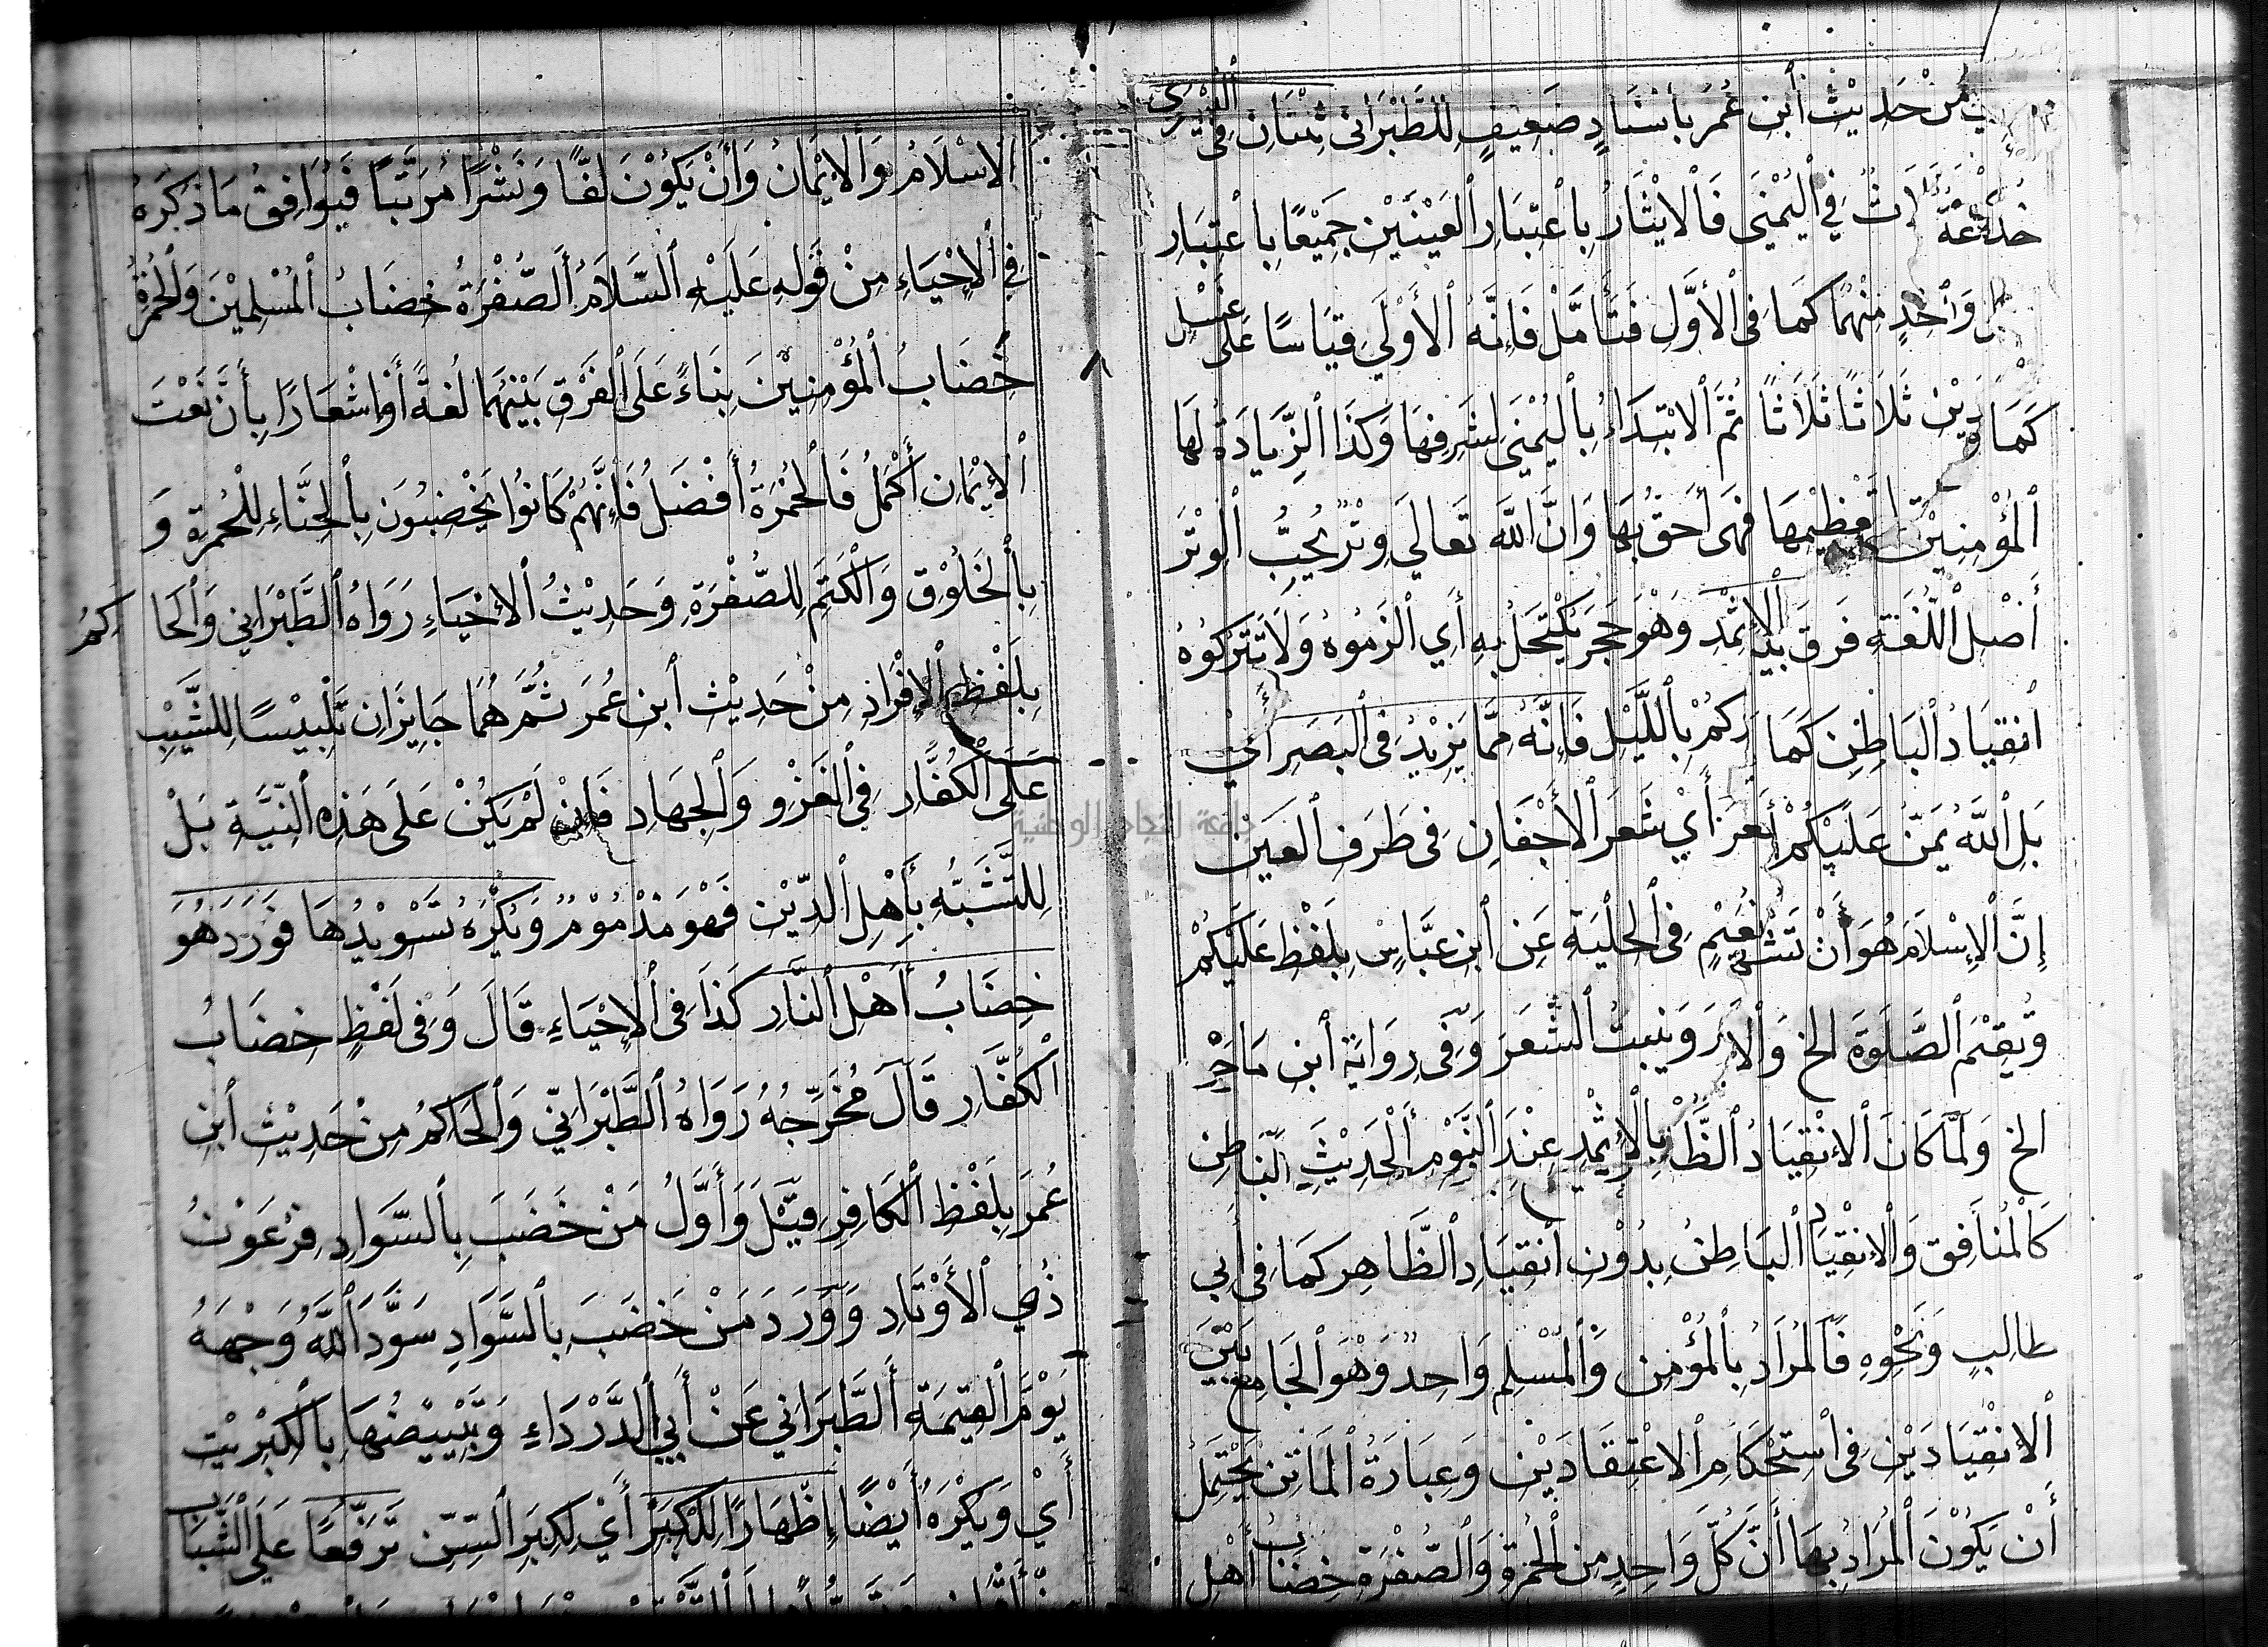 مِنْ حَدِيْثِ ٱبن عُمَرَ بِاسْنَادٍ ضَعِيفٍ لِلطَّبْرَانى ثِنْتَانِ فِى اليُسْرَى
ثٌ فِي ٱليُمْنَى فَالْايْثَارُ بِاعْتِبَارِ ٱلعَيْنَيْنِ جَمِيْعًا بِاعْتِبَارِ
وَٱحْدٍ مِنْهُمَا كَمَا فِى ٱلْأَوَّلِ فَتَأَمَّلْ فَإِنَّهُ ٱلأَوْلَى قِيَاسًا عَلَى غَسْلِ
كَمَا ثَلَاثًا ثَلَاثًا ثُمَّ ٱلابْتِدَاءُ بِٱليُمْنَى لِشَرَفِهَا وَكَذَا ٱلزِّيَادَةُ لَهَا
ٱلمُؤْمِنِيْنَ لتَعْظِيْمِهَا فَهِىَ أَحَقُّ بِهَا وَانَّ ٱللَّهَ تَعَالَى وِتْرٌ يُحِبُّ ٱلوِتْرَ
أَصْلِ ٱللُّغَةِ فَرَقَ بَيْ ٱلإثْمَد وَهْوَ حَجَرٌ يُكْتَحَلُ بِهِ أَيِ ٱلْزَمُوهُ وَلَا تَتْرُكُوهُ
ٱنقِيَادُ ٱلبَاطِنِ كَمَا رَكُمْ بِٱللَّيْلِ فَإِنَّهُ مِمَّا يَزِيْدُ فِى ٱلبَصَرِ أَيْ
بَلِ ٱللَّهُ يَمَنُّ عَلَيْكُمْ أَيْ شَعَرَ ٱلأَجْفَانِ فِى طَرَفِ ٱلعَيْنِ
إِنَّ ٱلإِسْلَامَ هُوَ أَنْ تَشْ نُعَيْمٍ فِى ٱلحِلْيَةِ عَنِ ٱبنِ عَبَّاسٍ بِلَفْظِ عَلَيْكُمْ
وَتُقِيْمَ ٱلصَّلَوةَ الخ وَٱلا وَيُنبِتُ ٱلشَّعَرَ وَفِى رِوَايَةِ ٱبنِ مَاجَهْ
الخ وَلَمَّا كَانَ ٱلاِنْقِيَادُ ٱلظَّا بِٱلإِثْمِدِ عِنْدَ ٱلنَّوْمِ ٱلْحَدِيْثَ ٱلبَاطِنِ
كَالْمُنَافِقِ وَٱلاِنْقِيَادُ ٱلبَاطِنُ بِدُوْنِ ٱنْقِيَادِ ٱلظَّاهِرِ كَمَا فِى أَبِي
طَالِبٍ وَنَحْوِهِ فَٱلمُرَادُ بِٱلْمُؤْمِنِ وَٱلْمُسْلِمِ وَاحِدٌ وَهْوَ ٱلْجَامِعُ بَيْنَ
ٱلاِنْقِيَادَيْنِ فِى ٱسْتِحْكَامِ ٱلاعْتِقَادَيْنِ وَعِبَارَةُ ٱلمَاتِنِ يَحْتَمِلُ
أَنْ يَكُوْنَ ٱلْمُرَادُ بِهَا أَنَّ كُلَّ وَاحِدٍ مِن ٱلْحُمْرَةِ وَٱلصُّفْرَةِ خِضَابُ أَهْلِ
ٱلاِسْلَامِ وَٱلاِيْمَانِ وَأَنْ يَكُوْنَ لَفًّا وَنَشْرًا مُرَتَّبًا فَيُوَافِقُ مَا ذَكَرَهُ
فِي ٱلاِحْيَاءِ مِنْ قَوْلِهِ عَلَيْهِ ٱلسَّلَامُ ٱلصُّفْرَةُ خِضَابُ ٱلمُسْلِمِيْنَ وَٱلْحُمْرَةُ
خِضَابُ ٱلْمُؤْمِنِيْنَ بِنَاءً عَلَى ٱلفَرْقِ بَيْنَهُمَا لُغَةً أَوْ إشْعَارًا بِأَنَّ نَعْتَ
ٱلاِيْمَانِ أَكْمَلُ فَٱلْحُمْرَةُ أَفْضَلُ فَإِنَّهُمْ كَانُوا يَخْضِبُونَ بِٱلْحِنَّاءِ لِلْحُمْرَةِ وَ
بِٱلْخَلُوْقِ وَٱلْكَتَمِ لِلصُّفْرَةِ وَحَدِيْثُ ٱلاِحْيَاءِ رَوَاهُ ٱلطَّبْرَانِي وَٱلْحَا كِمُ
بِلَفْظِ ٱلإِفْرَادِ مِنْ حَدِيْثِ ٱبنِ عُمَرَ ثُمَّ هُمَا جَايِزَانِ تَلْبِيْسًا لِلشَّيْبِ
عَلَى ٱلْكُفَّارِ فِي ٱلْغَزْوِ وَٱلْجِهَادِ فَإِنْ لَمْ يَكُنْ عَلَى هَذِهِ ٱلنِّيَّةِ بَلْ
لِلتَّشَبُّهِ بِأَهْلِ ٱلدِّيْنِ فَهْوَ مَذْمُوْمٌ وَيُكْرَهُ تَسْوِيْدُهَا فَوَرَدَ هُوَ
خِضَابُ أَهْلِ ٱلنَّارِ كَذَا فِى ٱلاِحْيَاءِ قَالَ وَفِى لَفْظٍ خِضَابُ
ٱلْكُفَّارِ قَالَ مُخَرِّجُهُ رَوَاهُ ٱلطَّبْرَانِيّ وَٱلْحَاكِمُ مِنْ حَدِيْثِ ٱبنِ
عُمَرَ بِلَفْظِ ٱلْكَافِرِ قِيْلَ وَأَوَّلُ مَنْ خَضَبَ بِٱلسَّوَادِ فِرْعَوْنُ
ذُي ٱلأَوْتَادِ وَوَرَدَ مَنْ خَضَبَ بِٱلسَّوَادِ سَوَّدَ ٱللَّهُ وَجْهَهُ
يَوْمَ ٱلْقِيَمَةِ ٱلطَّبَرَانِي عَنْ أَبِي ٱلدَّرْدَاءِ وَتَبْيِيْضُهَا بِٱلْكِبْرِيْتِ
أَيْ وَيُكْرَهُ أَيْضًا إِظْهَارًا لِلْكِبَرِ أَيْ لِكِبَرِ ٱلسِّنِ تَرَفُّعًا عَلَى ٱلشَّبَابِ